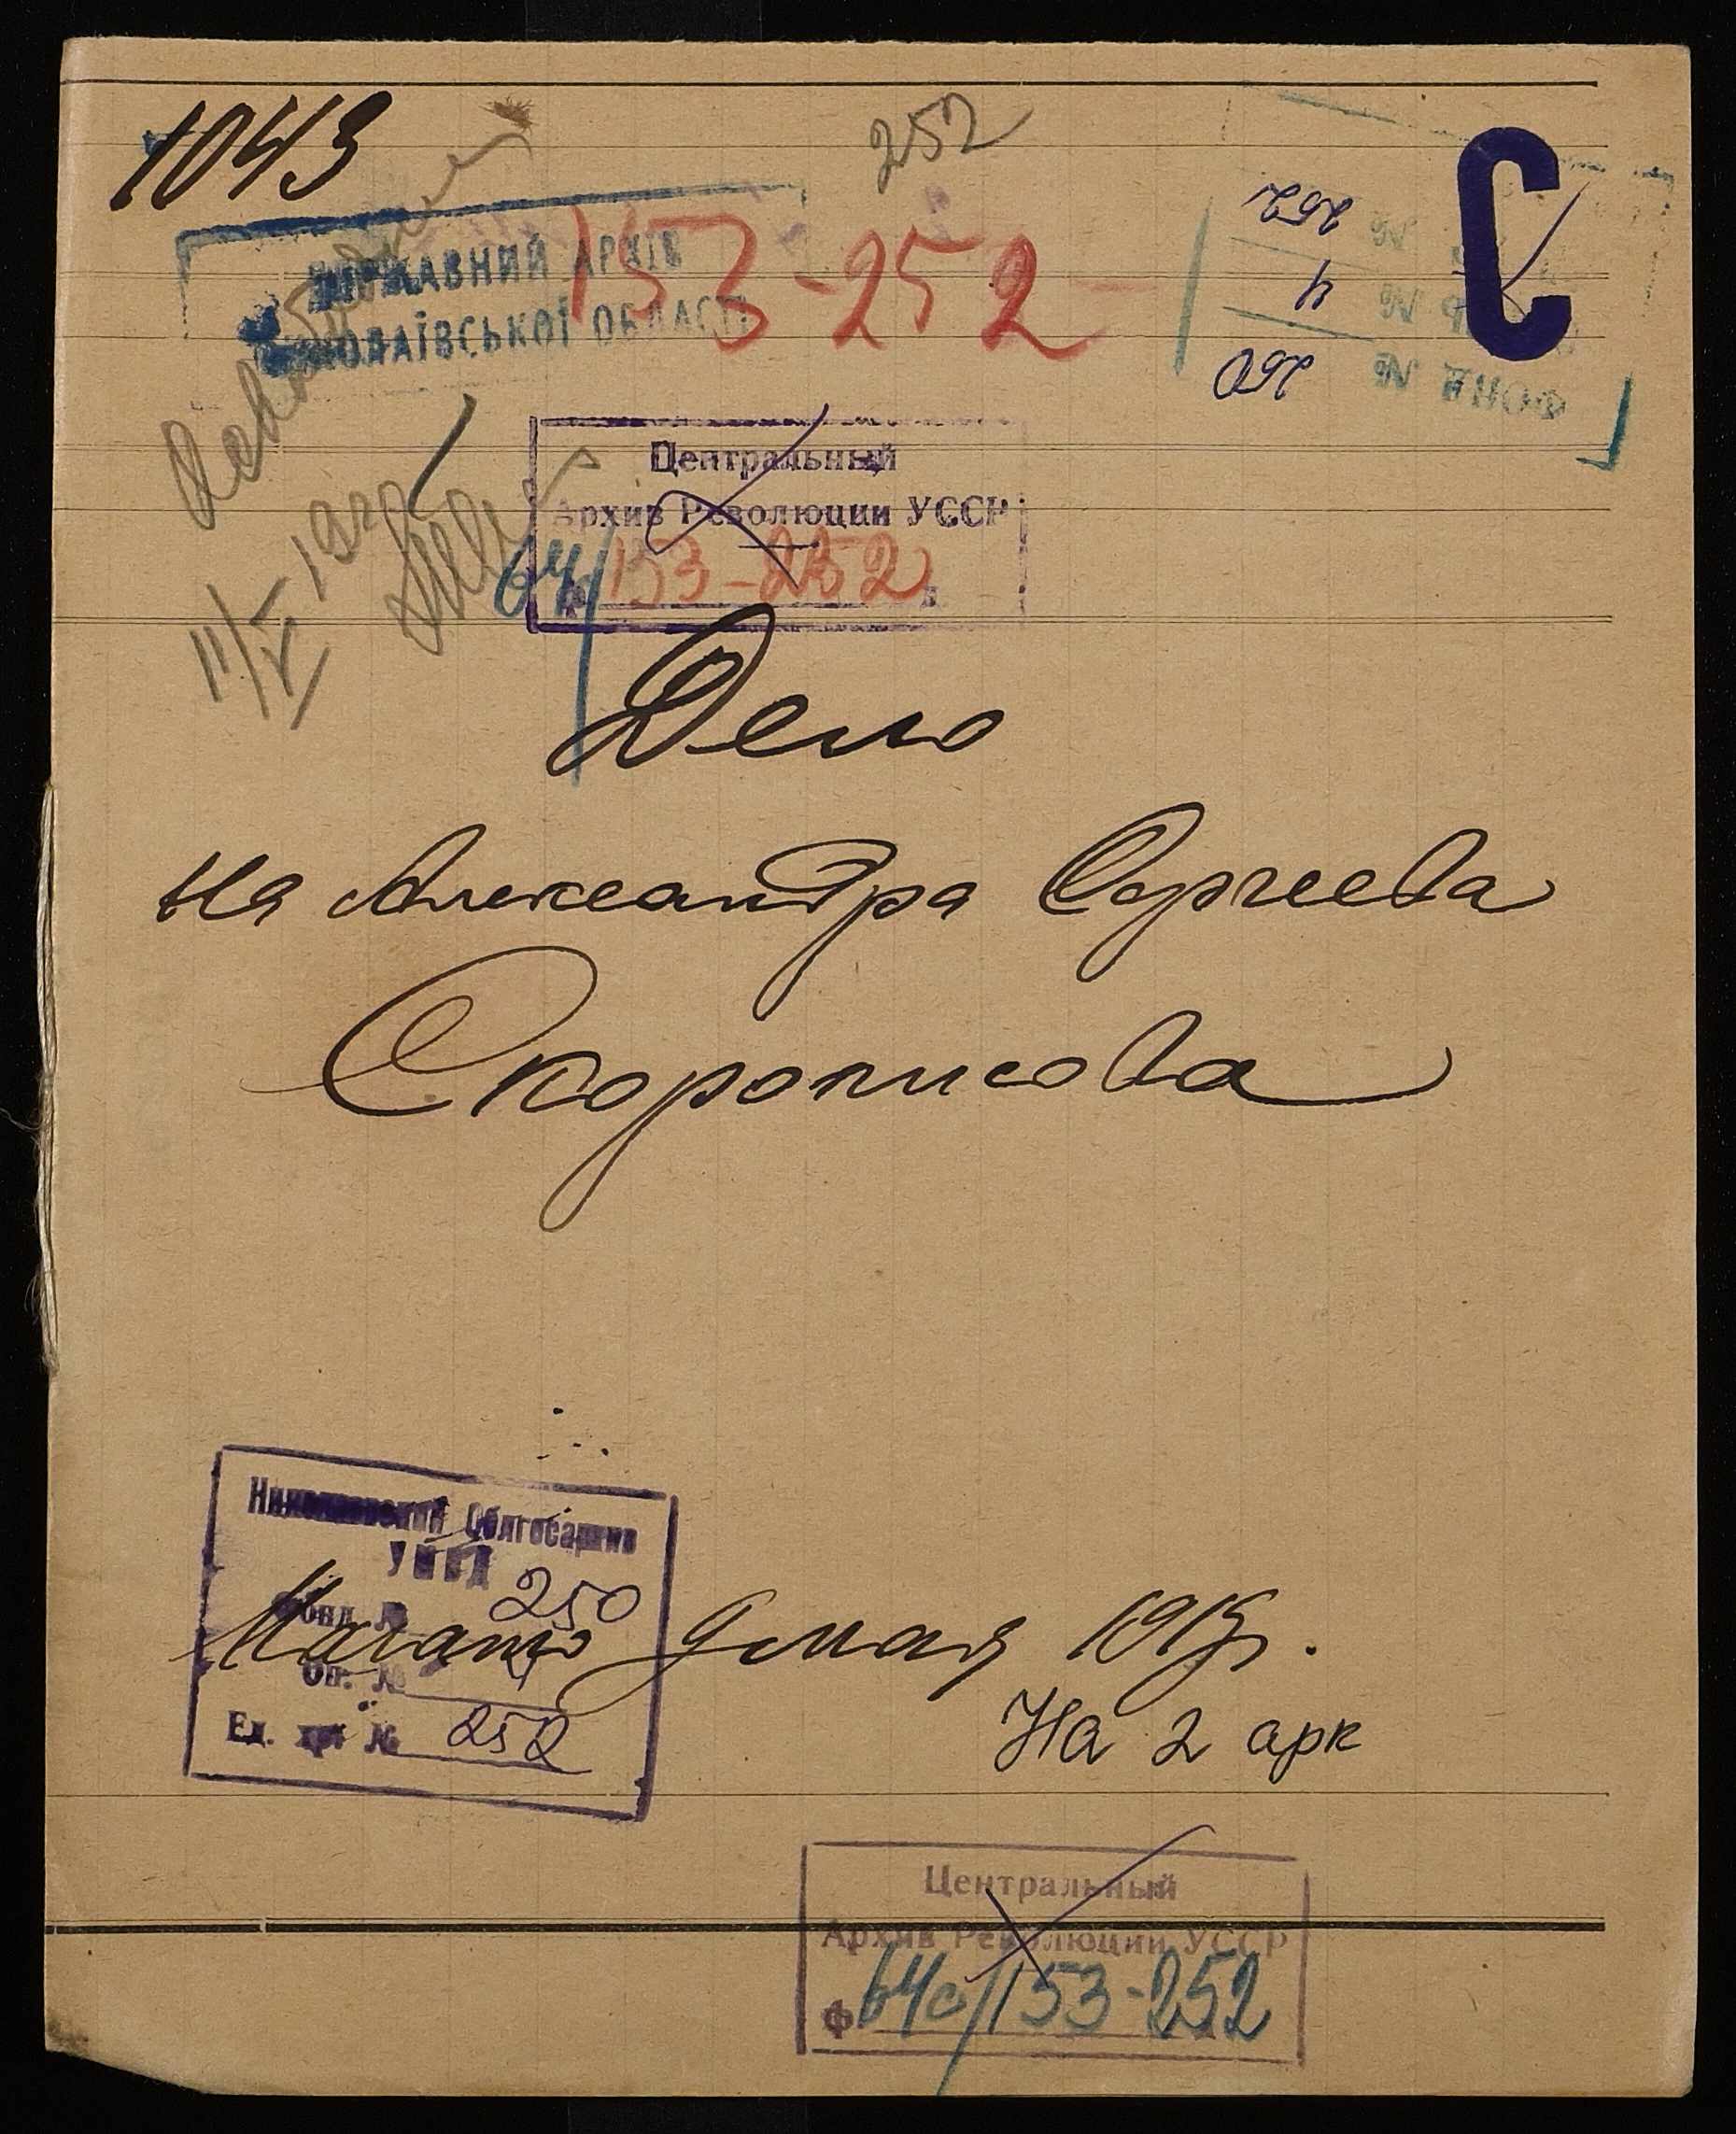 1043
252
С
ДЕРЖАВНИЙ АРХІВ
МИКОЛАЇВСЬКОЇ ОБЛАСТІ
153-252
ФОНД № 250
№ 4
№ 252
11/V
Центральный
Архив Революции УССР
64/153-252
Дело
на Александра Сергеева
Скорописова
Николаевский Облгосархив
УНВД
Фонд № 250
Оп. № 4
Ед. хр. № 252
Начато 9 мая 1919г.
На 2 арк
Центральный
Архив Революции УССР
ф 64с/153-252